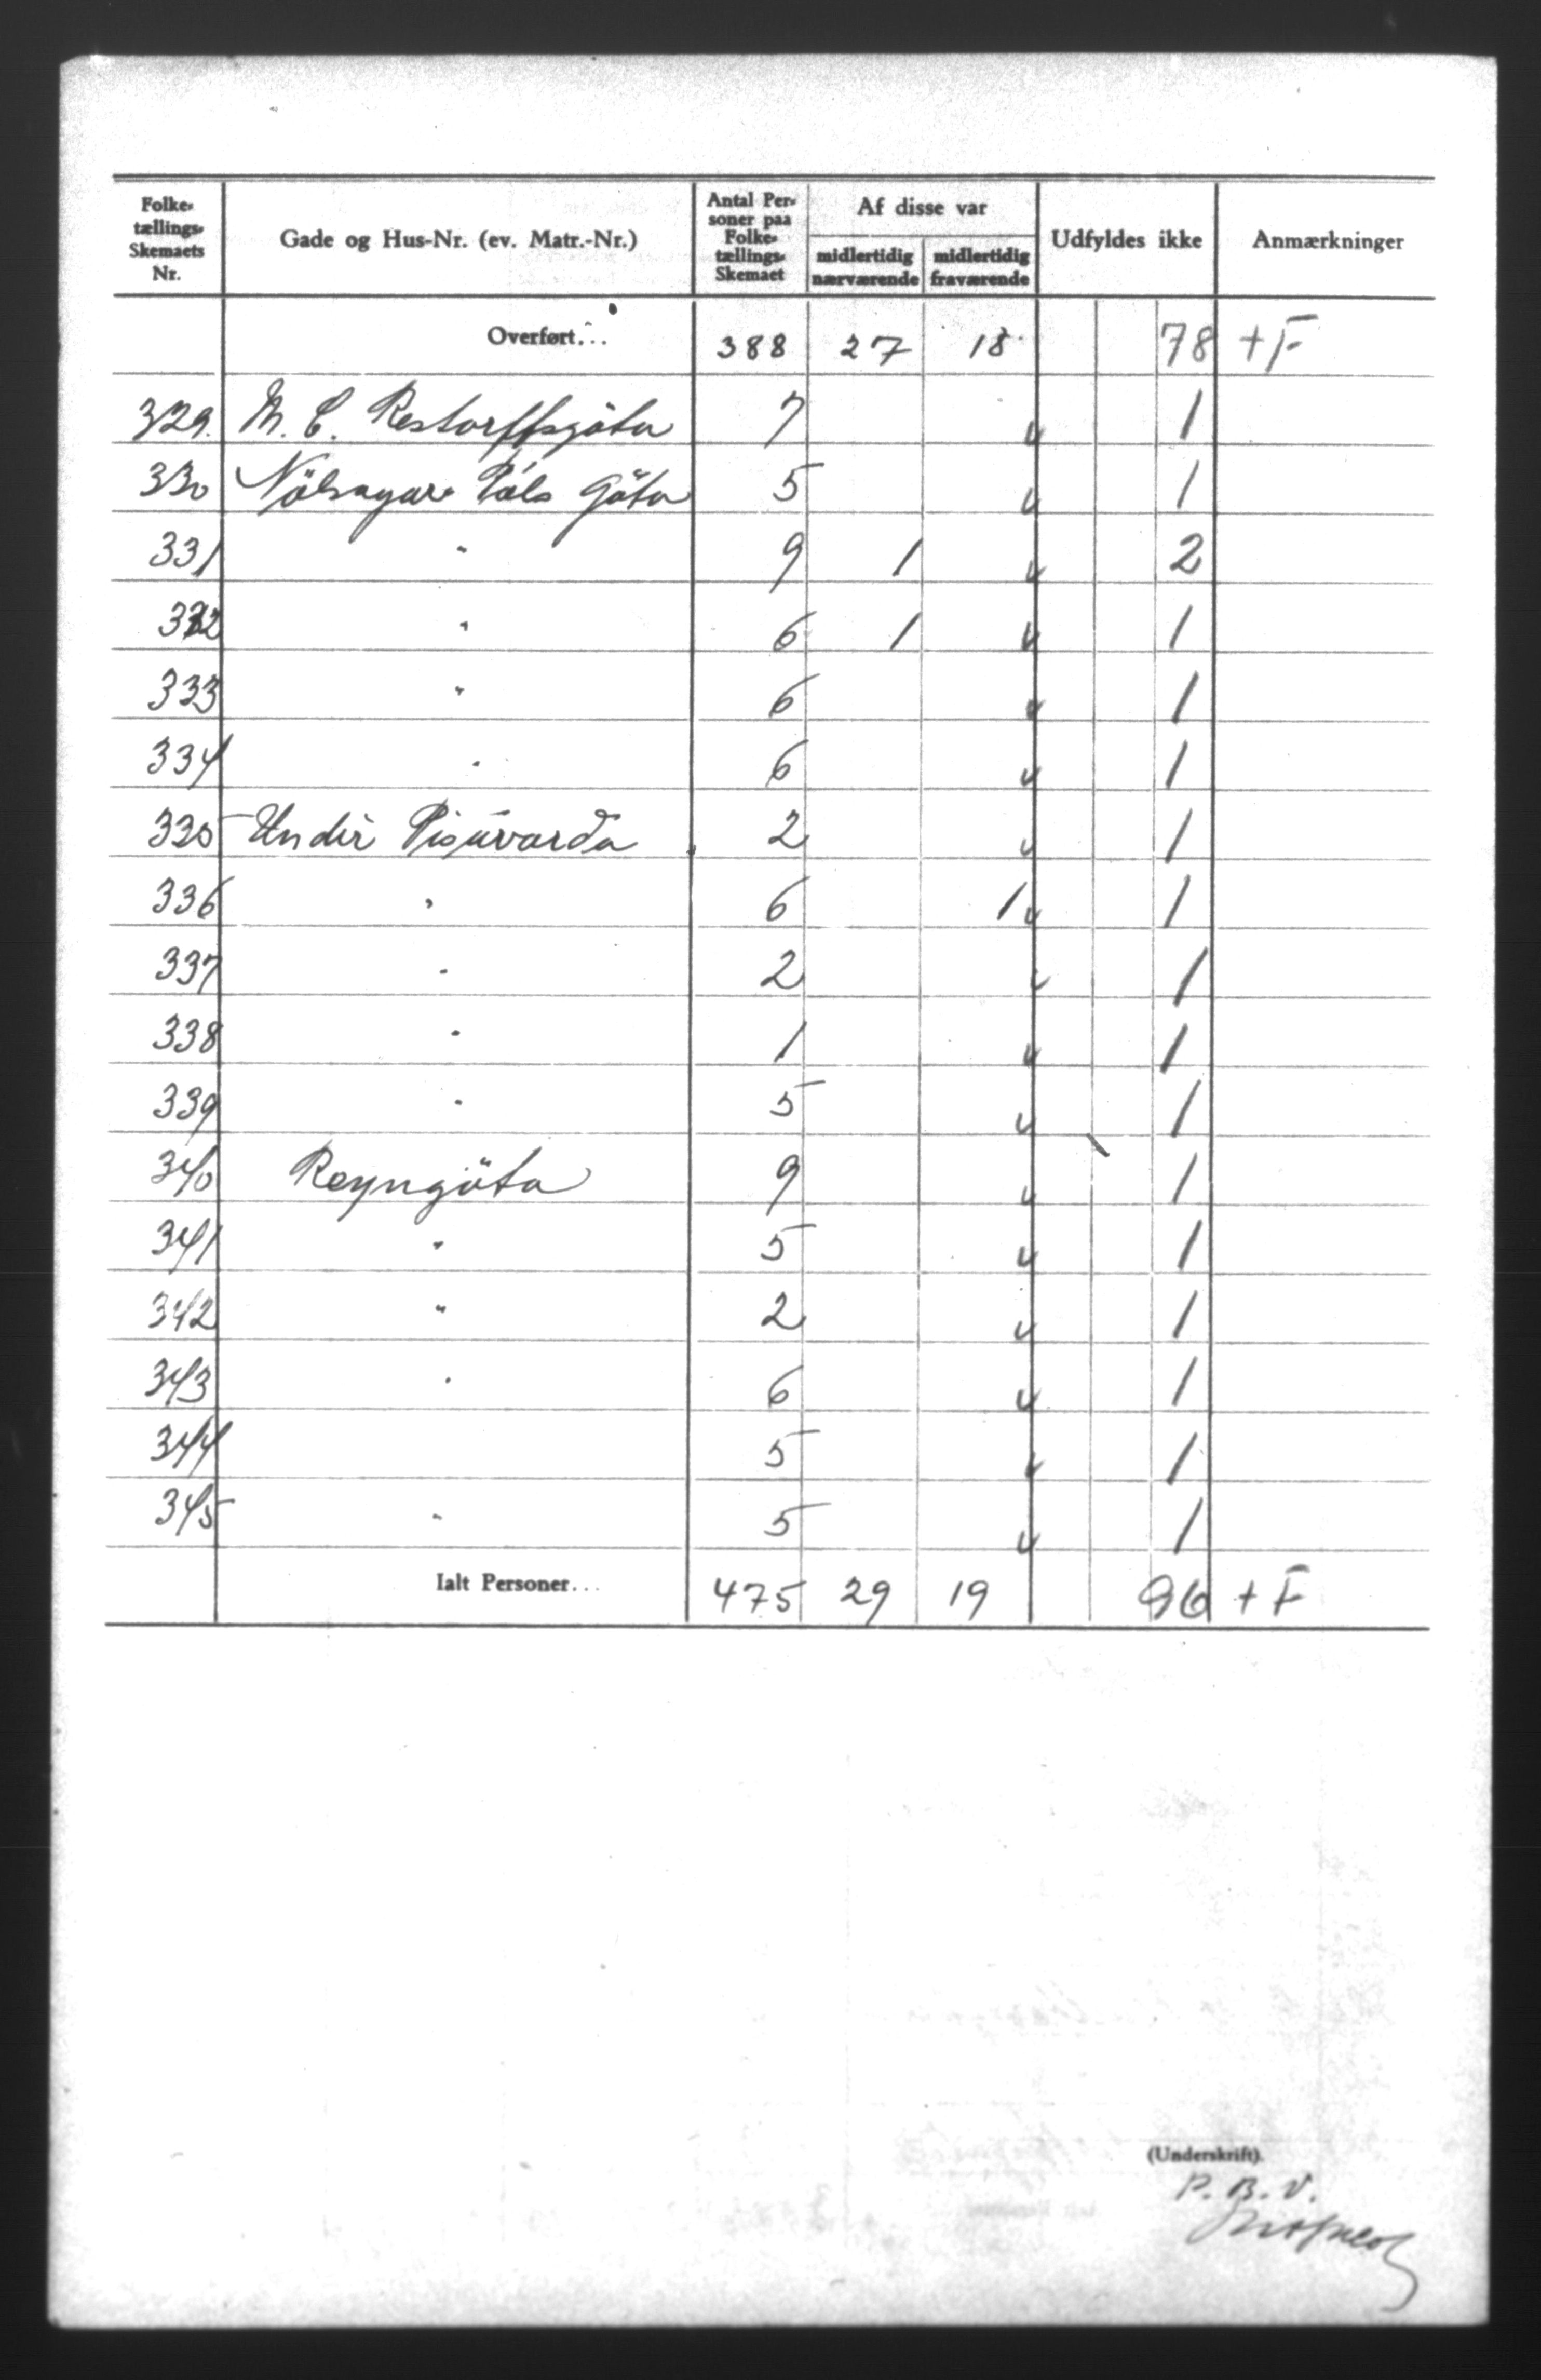 Folketællings-Skemaets Nr. | Gade og Hus-Nr. (ev. Matr.-Nr.) | Antal Personer paa Folketællings-Skemaet | Af disse var midlertidig nærværende | midlertidig fraværende | Udfyldes ikke | Anmærkninger
Overført... 388 27 18 78 + F
329. M. C. Restorffsgöta 7 v 1
330 Nölsoyar Páls Göta 5 v 1
331 " 9 1 v 2
332 " 6 1 v 1
333 " 6 v 1
334 " 6 v 1
335 Undir Pisuvarða 2 v 1
336 " 6 1 v 1
337 " 2 v 1
338 " 1 v 1
339 " 5 v 1
340 Reyngöta 9 v 1
341 " 5 v 1
342 " 2 v 1
343 " 6 v 1
344 5 v 1
345 " 5 v 1
Ialt Personer... 475 29 19 96 + F
(Underskrift).
P. B. V.